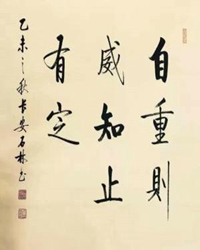 自重則
威知止
有定
乙未之秋長安石林书